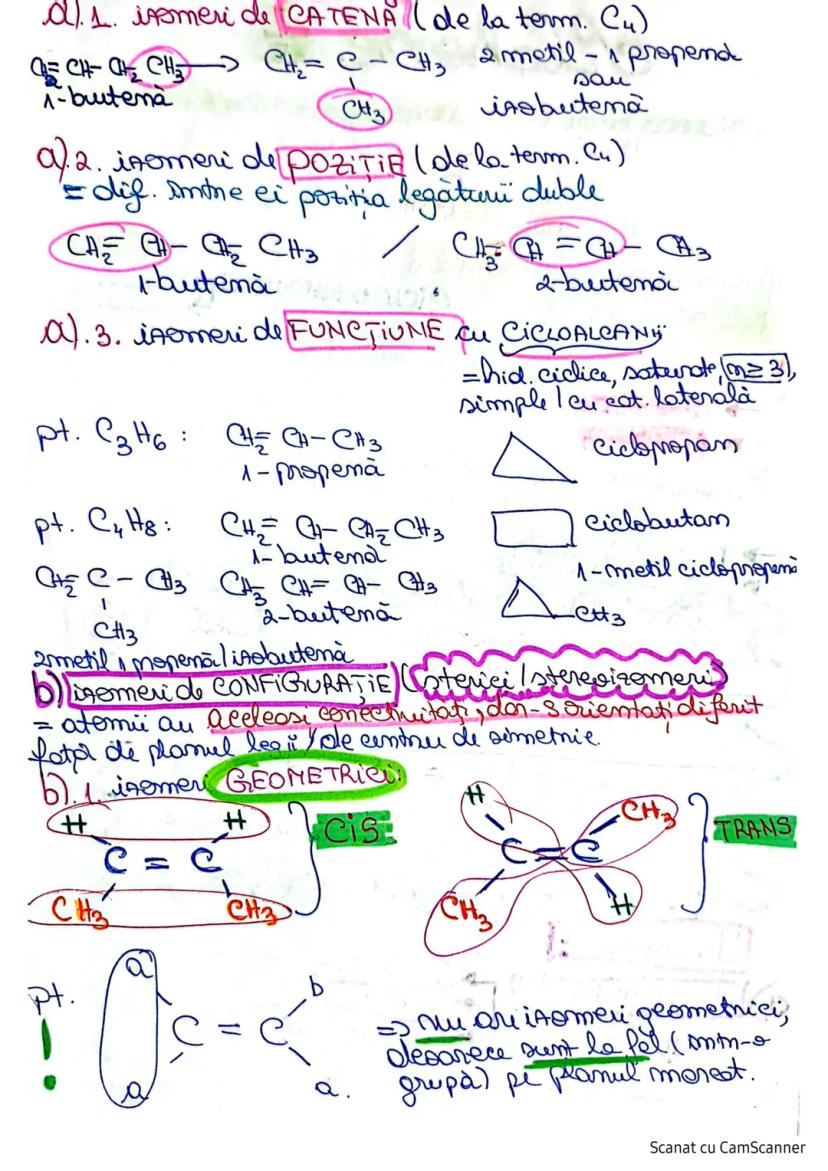 a).1. izomeri de CATENĂ (de la term. C4)
CH2= CH- CH2 CH3 → CH2= C - CH3 2 metil - 1 propenă
sau
1-butenă CH3 izobutenă
a).2. izomeri de POZIȚIE (de la term. C4)
= dif. între ei poziția legăturii duble
CH2= CH- CH2 CH3 / CH3- CH = CH- CH3
1-butenă 2-butenă
a).3. izomeri de FUNCȚIUNE cu CICLOALCANII
= hid. ciclice, saturate, n≥3,
simple / cu cat. laterală
pt. C3H6 : CH2= CH-CH3 ciclopropan
1-propenă
pt. C4H8: CH2= CH- CH2-CH3 ciclobutan
1-butenă 1-metil ciclopropenă
CH2= C - CH3 CH3- CH= CH- CH3
CH3 2-butenă CH3
2metil 1 propenă/izobutenă
b) izomeri de CONFIGURAȚIE (sterici / stereoizomeri)
= atomii au aceleași conectivități, dar-s orientați diferit
față de planul leg π / de centru de simetrie.
b).1. izomeri GEOMETRICI:
H H CIS H CH3 TRANS
C = C C = C
CH3 CH3 CH3 H
pt. a b
! C = C => nu are izomeri geometrici,
deoarece sunt la fel (într-o
a a. grupă) pe planul
Scanat cu CamScanner